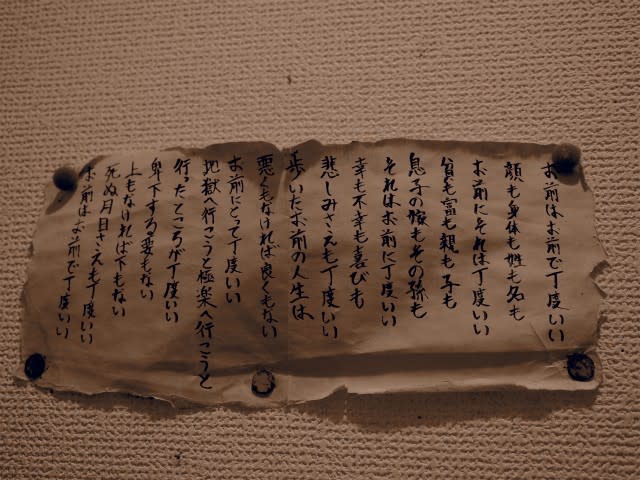 お前はお前で丁度いい
顔も身体も姓も名も
お前にそれは丁度いい
貧も富も親も子も
息子の嫁もその孫も
それはお前に丁度いい
幸も不幸も喜びも
悲しみさえも丁度いい
歩いたお前の人生は、
悪くもなければ良くもない
お前にとって丁度いい
地獄へ行こうと極楽へ行こうと
行ったところが丁度いい
卑下する要もない
上もなければ下もない
死ぬ月日さえも丁度いい
お前はお前で丁度いい